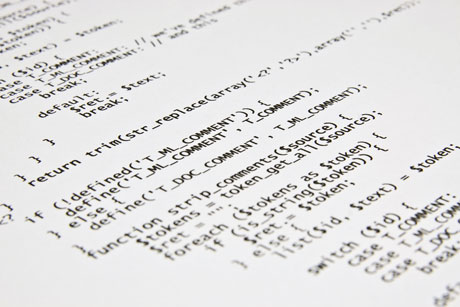 list($id, $text) = $token;
switch ($id) {
case T_COMMENT:
case T_ML_COMMENT: // we've defined
case T_DOC_COMMENT: // and this
break;
default:
$ret .= $text;
break;
}
}
}
return trim(str_replace(array('<?', '?>'), array('', ''), $ret));
}
<?
if (!defined('T_ML_COMMENT')) {
define('T_ML_COMMENT', T_COMMENT);
} else {
define('T_DOC_COMMENT', T_ML_COMMENT);
}
function strip_comments($source) {
$tokens = token_get_all($source);
$ret = "";
foreach ($tokens as $token) {
if (is_string($token)) {
$ret .= $token;
} else {
list($id, $text) = $token;
switch ($id) {
case T_COMMENT:
case T_ML_COMMENT:
case T_DOC
break;